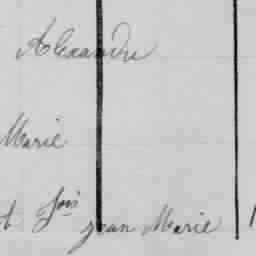 Alexandre
Marie
jean Marie